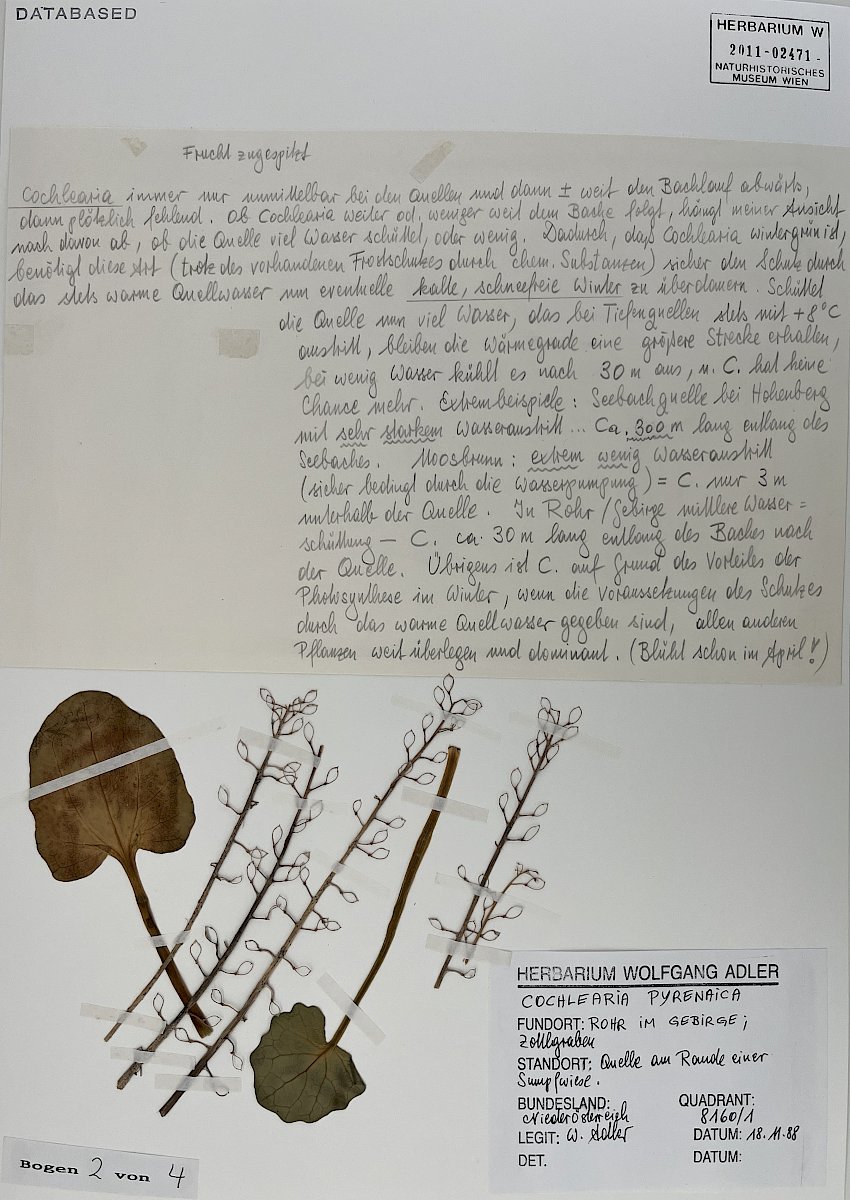 DATABASED
HERBARIUM W
2011-02471-
NATURHISTORISCHES
MUSEUM WIEN
Frucht zugespitzt
Cochlearia immer nur unmittelbar bei den Quellen und dann ± weit den Bachlauf abwärts,
dann plötzlich fehlend. Ob Cochlearia weiter od. weniger weit dem Bache folgt, hängt meiner Ansicht
nach davon ab, ob die Quelle viel Wasser schüttet, oder wenig. Dadurch, dass Cochlearia wintergrün ist,
benötigt diese Art (trotz des vorhandenen Frostschutzes durch chem. Substanzen) sicher den Schutz durch
das stets warme Quellwasser um eventuelle kalte, schneefreie Winter zu überdauern. Schüttet
die Quelle nun viel Wasser, das bei Tiefenquellen stets mit +8°C
austritt, bleiben die Wärmegrade eine größere Strecke erhalten,
bei wenig Wasser kühlt es nach 30 m aus, u. C. hat keine
Chance mehr. Extrembeispiele: Seebachquelle bei Hohenberg
mit sehr starkem Wasseraustritt ... Ca. 300 m lang entlang des
Seebaches. Moosbrunn: extrem wenig Wasseraustritt
(sicher bedingt durch die Wasserpumpung) = C. nur 3 m
unterhalb der Quelle. In Rohr/Gebirge mittlere Wasser=
schüttung — C. ca. 30 m lang entlang des Baches nach
der Quelle. Übrigens ist C. auf Grund des Vorteiles der
Photosynthese im Winter, wenn die Voraussetzungen des Schutzes
durch das warme Quellwasser gegeben sind, allen anderen
Pflanzen weit überlegen und dominant. (Blüht schon im April!)
HERBARIUM WOLFGANG ADLER
COCHLEARIA PYRENAICA
FUNDORT: ROHR IM GEBIRGE;
Zohlgraben
STANDORT: Quelle am Rande einer
Sumpfwiese.
BUNDESLAND: QUADRANT:
Niederösterreich 8160/1
LEGIT: W. Adler DATUM: 18.11.88
DET. DATUM:
Bogen 2 von 4